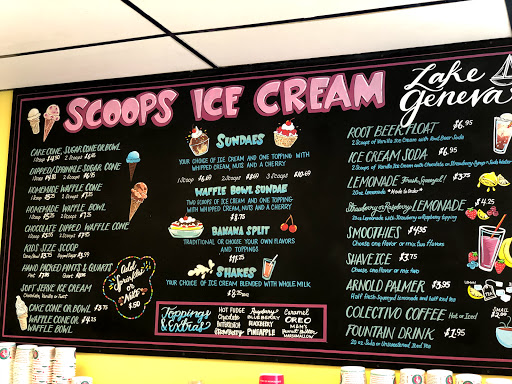 SCOOPS ICE CREAM
Lake
Geneva
CAKE CONE, SUGAR CONE OR BOWL
1 Scoop 2 Scoops
DIPPED/SPRINKLE SUGAR CONE
1 Scoop 2 Scoops
HOMEMADE WAFFLE CONE
1 Scoop 2 Scoops
HOMEMADE WAFFLE BOWL
1 Scoop 2 Scoops
CHOCOLATE DIPPED WAFFLE CONE
1 Scoop 2 Scoops
KIDS SIZE SCOOP
HAND PICKED PINTS & QUARTS
SOFT SERVE ICE CREAM
Chocolate, Vanilla or Twist
CAKE CONE OR BOWL $3.75
WAFFLE CONE OR $4.25
WAFFLE BOWL
Add
Sprinkles
or
Nuts
$.50
SUNDAES
YOUR CHOICE OF ICE CREAM AND ONE TOPPING WITH
WHIPPED CREAM, NUTS AND A CHERRY
1 Scoop 2 Scoops 3 Scoops
WAFFLE BOWL SUNDAE
TWO SCOOPS OF ICE CREAM AND ONE TOPPING WITH
WHIPPED CREAM, NUTS AND A CHERRY
$8.75
BANANA SPLIT
TRADITIONAL OR CHOOSE YOUR OWN FLAVORS
AND TOPPINGS
$11.25
SHAKES
YOUR CHOICE OF ICE CREAM BLENDED WITH WHOLE MILK
Toppings
& Extras
HOT FUDGE
Chocolate
BUTTERSCOTCH
Strawberry
Raspberry
BLUEBERRY
BLACKBERRY
PINEAPPLE
Caramel
OREO
M&M's
Peanut Butter
MARSHMALLOW
ROOT BEER FLOAT $6.95
2 Scoops of Vanilla Ice Cream with Root Beer Soda
ICE CREAM SODA $6.95
2 Scoops of Vanilla Ice Cream with Chocolate or Strawberry Syrup & Soda Water
LEMONADE Fresh Squeezed!
20oz. Lemonades *Made to Order*
Strawberry or Raspberry LEMONADE $4.50
20oz Lemonade with Strawberry or Raspberry topping
SMOOTHIES $4.95
Choose one flavor or mix two flavors
SHAVE ICE $3.75
Choose one flavor or mix two
ARNOLD PALMER $3.95
Half fresh-squeezed lemonade and half iced tea
COLECTIVO COFFEE Hot or Iced
SMALL
$2.00
FOUNTAIN DRINK $1.95
20 oz. Soda or Unsweetened Iced Tea